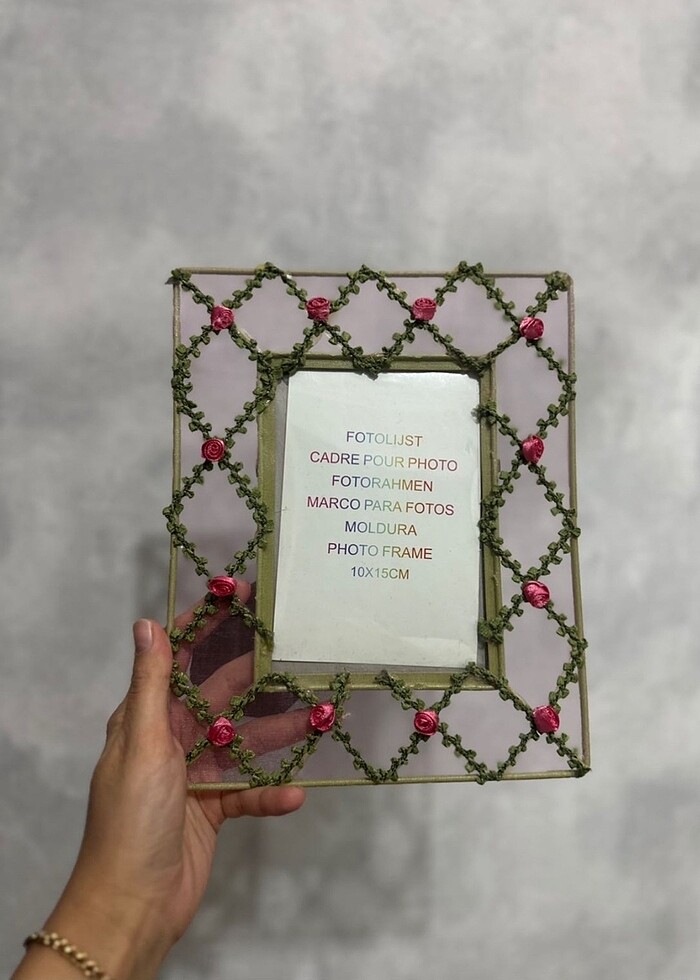 FOTOLIJST
CADRE POUR PHOTO
FOTORAHMEN
MARCO PARA FOTOS
MOLDURA
PHOTO FRAME
10X15CM